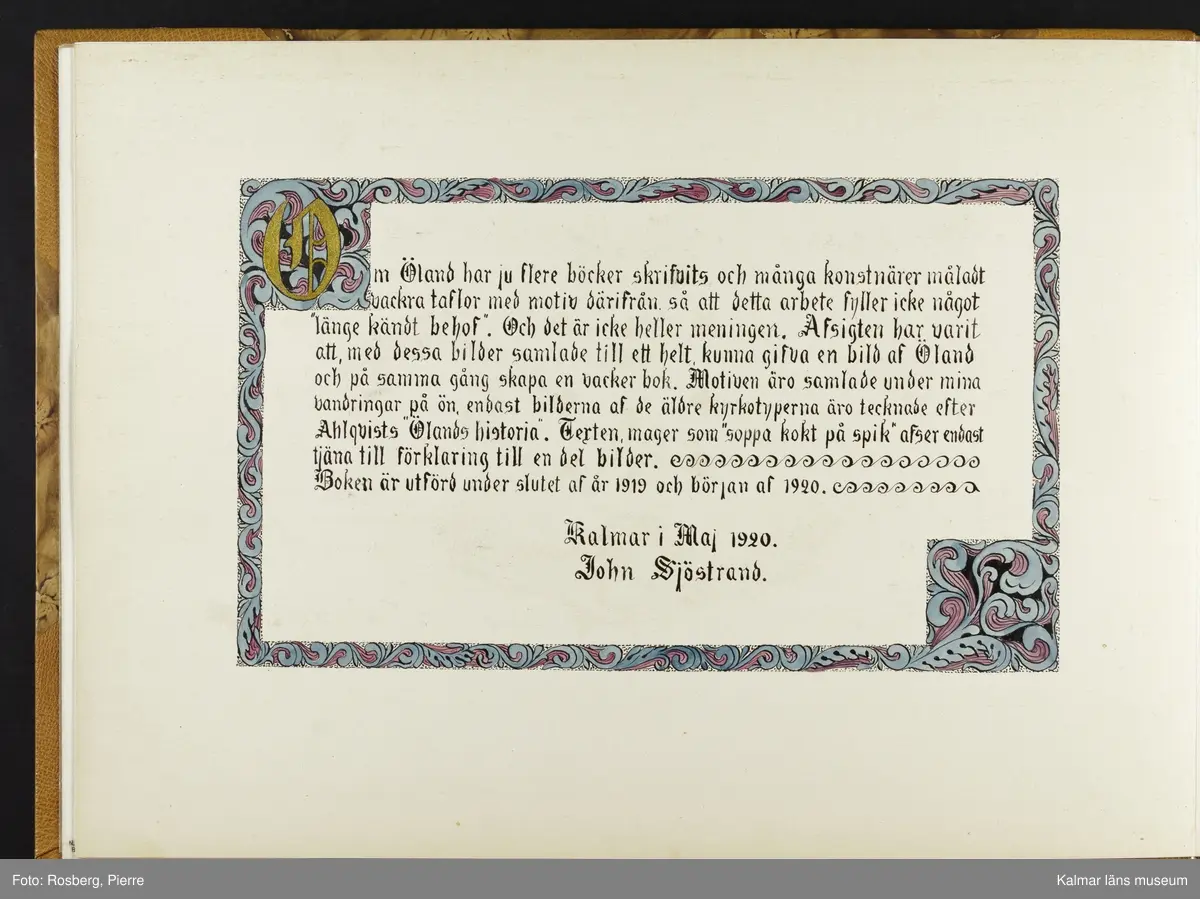 Om Öland har ju flere böcker skrifvits och många konstnärer måladt
vackra taflor med motiv därifrån, så att detta arbete fyller icke något
"länge kändt behof". Och det är icke heller meningen. Afsigten har varit
att, med dessa bilder samlade till ett helt, kunna gifva en bild af Öland
och på samma gång skapa en vacker bok. Motiven äro samlade under mina
vandringar på ön, endast bilderna af de äldre kyrkotyperna äro tecknade efter
Ahlqvists "Ölands historia". Texten, mager som "soppa kokt på spik" afser endast
tjäna till förklaring till en del bilder.
Boken är utförd under slutet af år 1919 och början af 1920.
Kalmar i Maj 1920.
John Sjöstrand.
Foto: Rosberg, Pierre
Kalmar läns museum